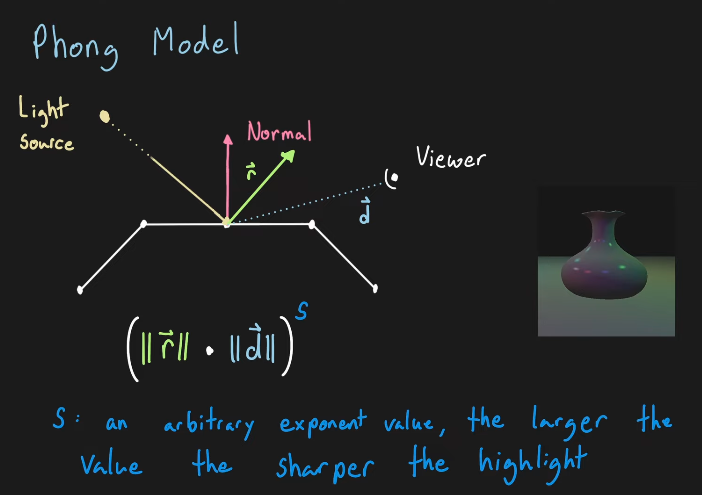 Phong Model
Light
Source
Normal
r⃗
Viewer
d⃗
(||r⃗|| • ||d⃗||)^s
S: an arbitrary exponent value, the larger the
value the sharper the highlight